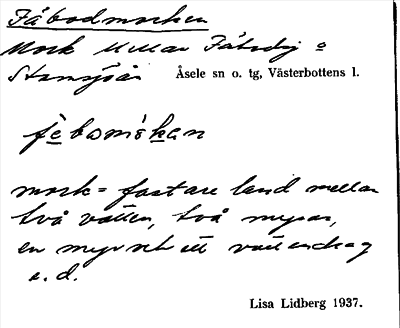 Fäbodmorken
Mork mellan Fäbodsj o
Stamsjöån Åsele sn o. tg, Västerbottens l.
mork = fastare land mellan
två vatten, två myrar,
en myr och ett vattendrag
e.d.
Lisa Lidberg 1937.